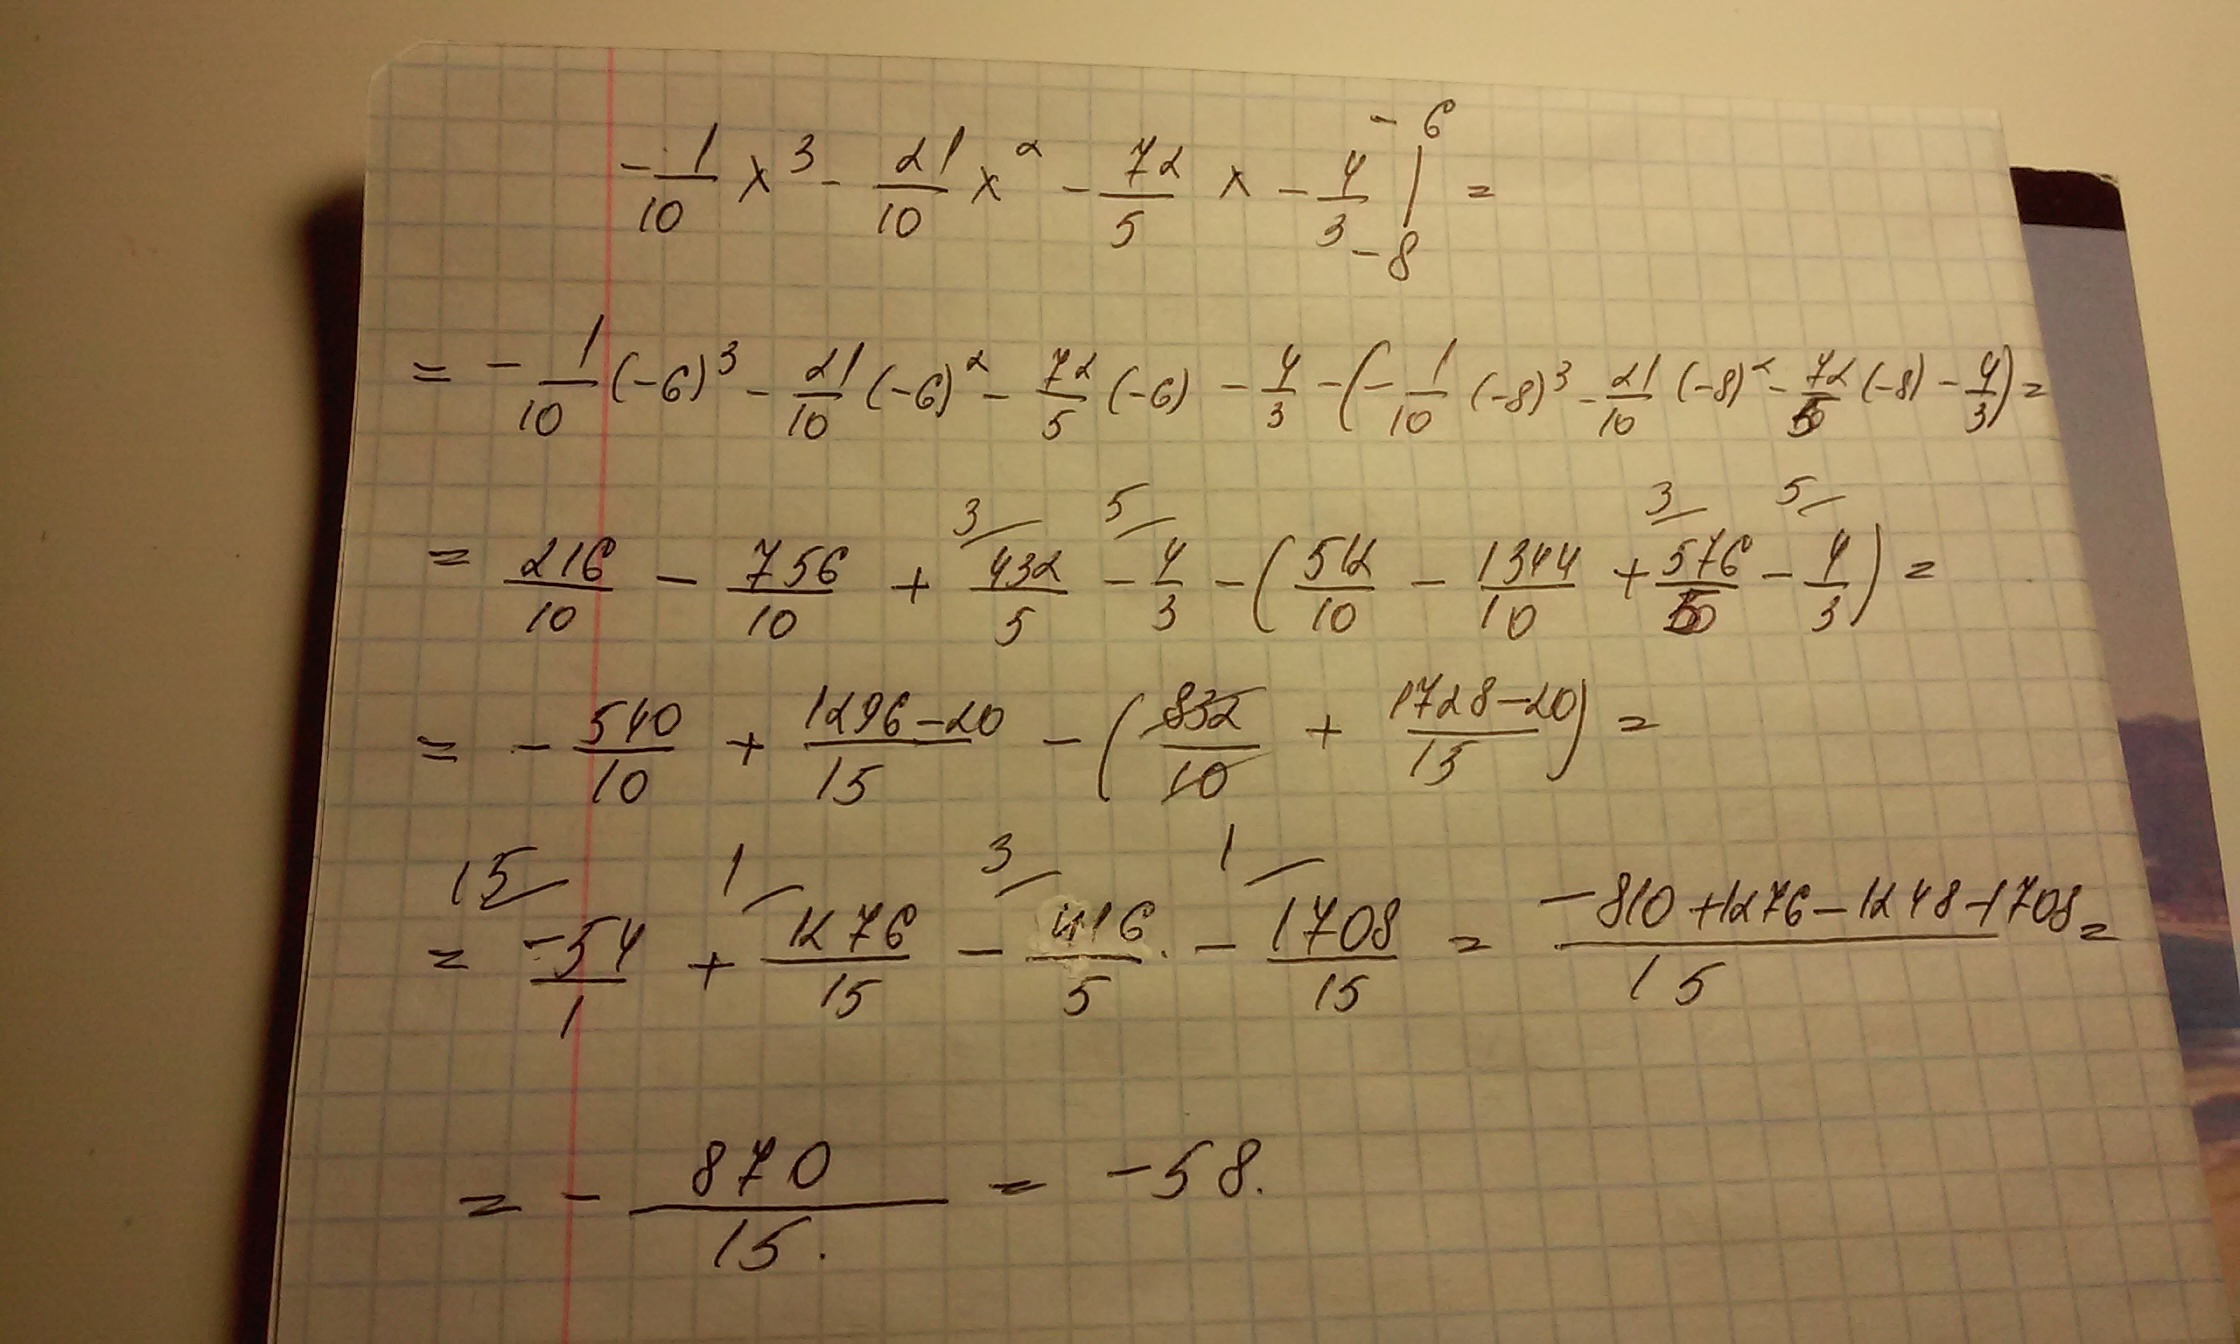 -1/10 x³ - 21/10 x² - 72/5 x - 4/3 |₋₈⁻⁶ =
= - 1/10 (-6)³ - 21/10 (-6)² - 72/5 (-6) - 4/3 - (- 1/10 (-8)³ - 21/10 (-8)² - 72/5 (-8) - 4/3) =
3/ 5/ 3/ 5/
= 216/10 - 756/10 + 432/5 - 4/3 - (512/10 - 1344/10 + 576/5 - 4/3) =
= - 540/10 + 1296-20/15 - (832/10 + 1728-20/15) =
15/ 1/ 3/ 1/
= -54/1 + 1276/15 - 416/5 - 1708/15 = -810+1276-1248-1708/15 =
= - 870/15. = -58.